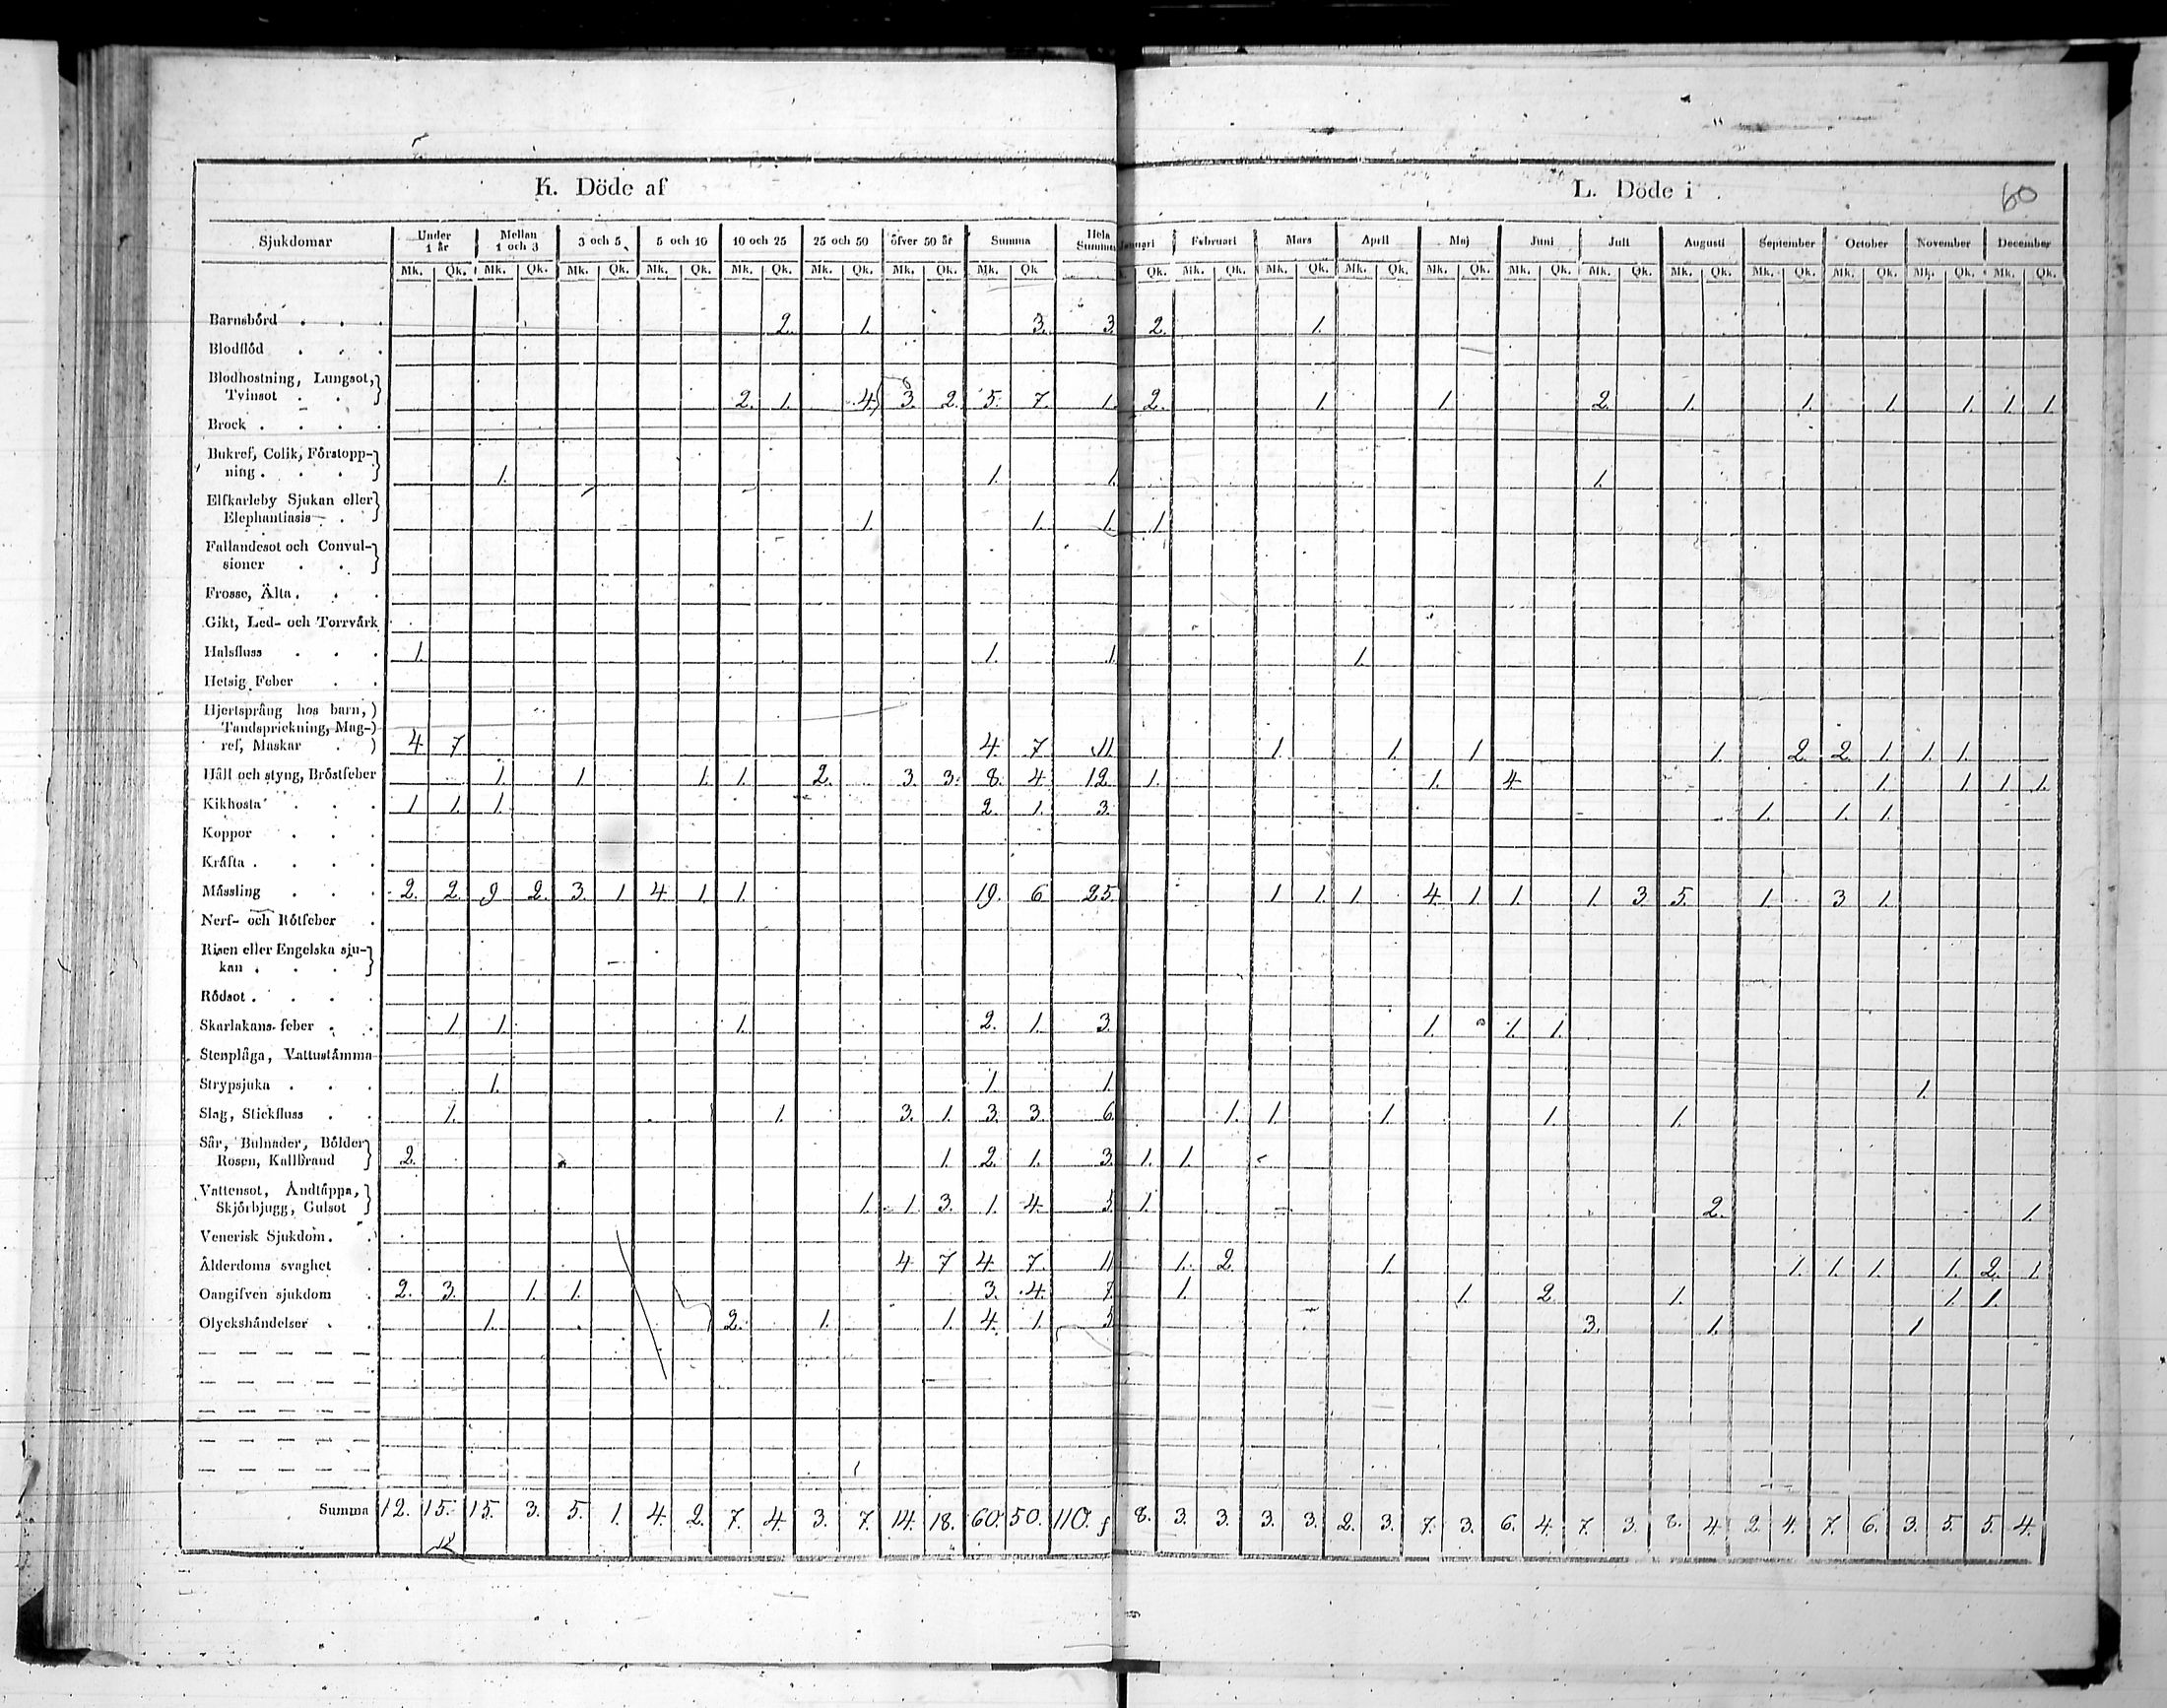 K. Döde af
L. Döde i
60
Sjukdomar Under 1 år Mellan 1 och 3 3 och 5 5 och 10 10 och 25 25 och 50 öfver 50 år Summa Hela Summan Januari Februari Mars April Maj Juni Juli Augusti September October November December
Mk. Qk. Mk. Qk. Mk. Qk. Mk. Qk. Mk. Qk. Mk. Qk. Mk. Qk. Mk. Qk Qk. Mk. Qk. Mk. Qk. Mk. Qk. Mk. Qk. Mk. Qk. Mk. Qk. Mk. Qk. Mk. Qk. Mk. Qk. Mk. Qk. Mk. Qk.
Barnsbörd 2. 1. 3. 3 2. 1.
Blodflöd
Blodhostning, Lungsot,
Tvinsot 2. 1. 4 3. 2. 5. 7. 1. 2. 1. 1. 2. 1. 1. 1. 1. 1. 1.
Brock
Bukref, Colik, Förstopp-
ning 1. 1. 1. 1.
Elfkarleby Sjukan eller
Elephantiasis 1. 1. 1. 1
Fallandesot och Convul-
sioner
Frosse, Älta
Gikt, Led- och Torrvärk
Halsfluss 1. 1. 1. 1.
Hetsig Feber
Hjertsprång hos barn,
Tandsprickning, Mag-
ref, Maskar 4 7. 4. 7 11 1. 1. 1 1. 2. 2. 1 1. 1.
Håll och styng, Bröstfeber 1. 1. 1. 1. 2. 3. 3. 8. 4. 12. 1. 1. 4 1. 1. 1. 1.
Kikhosta 1 1. 1. 2. 1. 3. 1. 1. 1.
Koppor
Kräfta
Mässling 2. 2. 9 2. 3. 1 4. 1. 1. 19. 6 25 1 1. 1. 4 1. 1. 1. 3. 5. 1. 3 1.
Nerf- och Rötfeber
Risen eller Engelska sju-
kan
Rödsot
Skarlakans-feber 1. 1. 1. 2. 1. 3 1. 1. 1.
Stenplåga, Vattustämma
Strypsjuka 1. 1 1. 1.
Slag, Stickfluss 1. 1. 3. 1. 3. 3. 6. 1. 1. 1. 1. 1.
Sår, Bulnader, Bölder
Rosen, Kallbrand 2. 1. 2. 1. 3. 1. 1.
Vattensot, Andtäppa,
Skjörbjugg, Gulsot 1. 1. 3. 1. 4. 5 1. 2. 1.
Venerisk Sjukdom.
Ålderdoms svaghet 4. 7 4. 7. 11 1. 2. 1. 1. 1. 1. 1. 2. 1.
Oangifven sjukdom 2. 3. 1. 1. 3. 4. 7. 1. 1. 2. 1. 1. 1.
Olyckshändelser 1. 2. 1. 1. 4. 1. 5 3. 1. 1
Summa 12. 15. 15. 3. 5. 1. 4. 2. 7. 4. 3. 7. 14. 18. 60. 50. 110. 8. 3. 3. 3. 3. 2. 3. 7. 3. 6. 4. 7. 3. 8. 4. 2. 4. 7. 6. 3. 5. 5. 4.